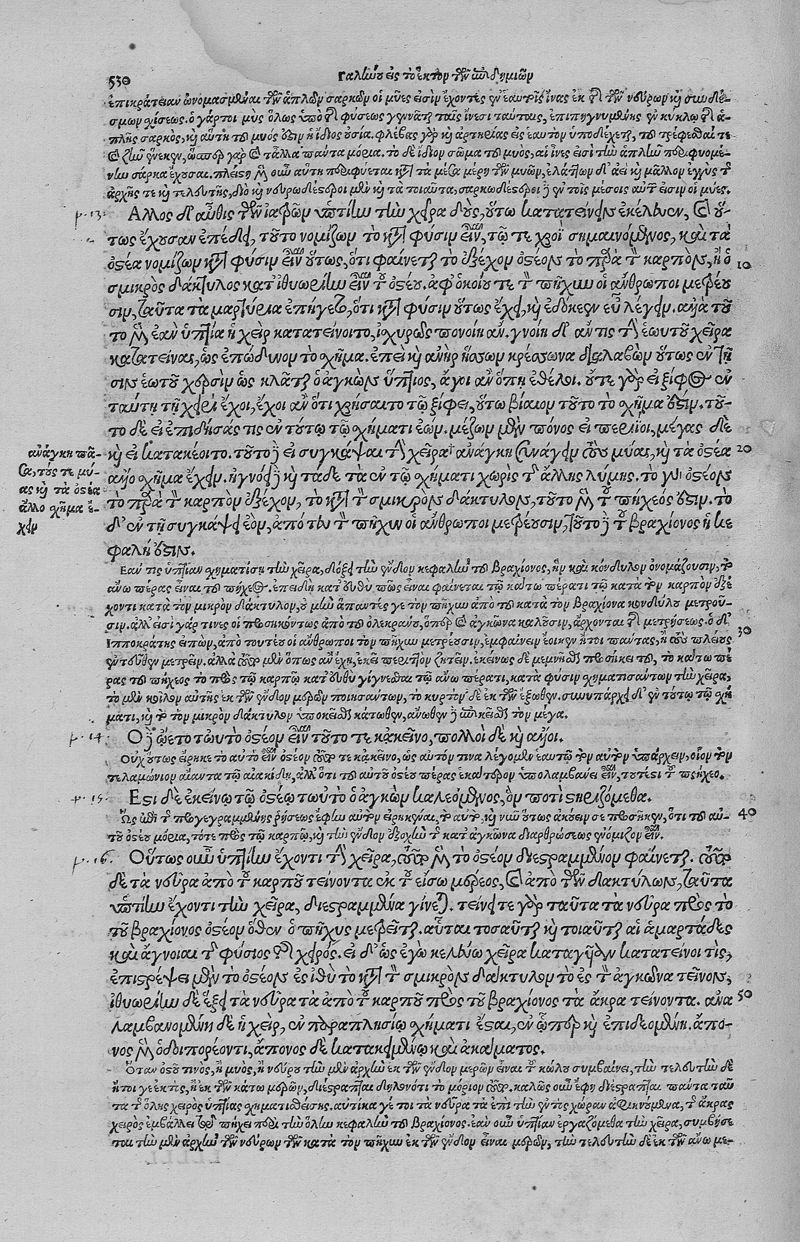 530 Γαληνοῦ εἰς τὸ ἕκτον τῶν ἐπιδημιῶν
ἐπικράτειαν ὠνομασμένων τῶν ἁπλῶν σαρκῶν οἱ μύες εἰσὶν ἔχοντες ἐν ἑαυτοῖς ἶνας ἐκ τῆς τῶν νεύρων καὶ συνδέ-
σμων σχίσεως. ὁ γάρ τοι μῦς ὅλως ὑπὸ τῆς φύσεως γεννᾶται ταῖς ἰνεσὶ ταύταις, ἐπιπηγνυμένης ἐν κύκλῳ τῆς ἁ-
πλῆς σαρκὸς, καὶ αὕτη τοῦ μυός ἐστιν ἡ ἰδία οὐσία. φλέβας γὰρ καὶ ἀρτηρίας εἰς ἑαυτὸν ὑποδέχεται, τοῦ τρέφεσθαί τε
καὶ ζῆν ἕνεκεν, ὥσπερ γὰρ καὶ τἄλλα πάντα μόρια. τὸ δὲ ἴδιον σῶμα τοῦ μυὸς, αἱ ἶνές εἰσι τὴν ἁπλῆν περιφυομέ-
νην σάρκα ἔχουσαι. πλείστη μὲν οὖν αὕτη περιφύεται κατὰ τὰ μέσα μέρη τῶν μυῶν, ἐλάττων δ' ἀεὶ καὶ μᾶλλον ἐγγὺς τῆς
ἀρχῆς τε καὶ τελευτῆς, διὸ καὶ νευρωδέστεροι μὲν κατὰ τὰ τοιαῦτα, σαρκωδέστεροι δὲ ἐν τοῖς μέσοις αὑτῶν εἰσιν οἱ μύες.
μ. 13. Ἄλλος δ' αὖθις τῶν ἰητρῶν ὑπτίην τὴν χεῖρα δοὺς, οὕτω κατατείνειν ἐκέλευεν, καὶ οὕ-
τως ἔχουσαν ἐπέδει, τοῦτο νομίζων τὸ κατὰ φύσιν εἶναι, τῷ τε χροῒ σημαινόμενος, καὶ τὰ
ὀστέα νομίζων κατὰ φύσιν εἶναι οὕτως, ὅτι φαίνεται τὸ ἐξέχον ὀστέον τὸ παρὰ τὸν καρπὸν, ᾗ ὁ 10
σμικρὸς δάκτυλος κατ' ἰθυωρίην εἶναι τοῦ ὀστέου. ἀφ' ὁκοίου τε τὸν πῆχυν οἱ ἄνθρωποι μετρέου
σιν, ταῦτα τὰ μαρτύρια ἐπήγετο, ὅτι κατὰ φύσιν οὕτως ἔχει, καὶ ἐδόκεεν εὖ λέγειν. ἀλλὰ τοῦ
το μὲν ἐὰν ὑπτία ἡ χεὶρ κατατείνοιτο, ἰσχυρῶς πονοίη ἄν. γνοίη δ' ἄν τις τὴν ἑωυτοῦ χεῖρα
κατατείνας, ὡς ἐπώδυνον τὸ σχῆμα. ἐπεὶ καὶ ἀνὴρ ἥσσων κρέσσονα διαλαβὼν οὕτως ἐν τῇ
σιν ἑωυτοῦ χερσὶν ὡς κλᾶται ὁ ἀγκὼν ὕπτιος, ἄγοι ἂν ὅπη ἐθέλοι. οὔτε γὰρ εἰ ξίφος ἐν
ταύτῃ τῇ χειρὶ ἔχοι, ἔχοι ἂν ὅτι χρήσαιτο τῷ ξίφει, οὕτω βίαιον τοῦτο τὸ σχῆμά ἐστιν. τοῦ-
το δὲ εἰ ἐπιδήσας τις ἐν τούτῳ τῷ σχήματι ἐῴη. μέζων μὲν πόνος εἰ περιίοι, μέγας δὲ
καὶ εἰ κατακέοιτο. τοῦτο δὲ εἰ συγκάψαι τὴν χεῖρα ἀνάγκη πᾶσα τούς μύας, καὶ τὰ ὀστέα 20
ἀνάγκη πᾶ-
σα, τούς τε μύ-
ας καὶ τὰ ὀστέα
ἄλλο σχῆμα ἔ-
χειν
ἄλλο σχῆμα ἔχειν. ἠγνόει δὲ καὶ τάδε τὰ ἐν τῷ σχήματι χωρὶς τῆς ἄλλης λύμης. τὸ γὰρ ὀστέον
τὸ παρὰ τὸν καρπὸν ἐξέχον, τὸ κατὰ τὸν σμικρὸν δάκτυλον, τοῦτο μὲν τοῦ πήχεός ἐστιν. τὸ
δ' ἐν τῇ συγκάψει ἐὸν, ἀπὸ τευ τὸν πῆχυν οἱ ἄνθρωποι μετρέουσιν, τοῦτο δὲ τοῦ βραχίονος ἡ κε
φαλή ἐστιν.
Ἐάν τις ὑπτίαν σχηματίσῃ τὴν χεῖρα, δόξει τὴν ἔνδον κεφαλὴν τοῦ βραχίονος, ἣν καὶ κόνδυλον ὀνομάζουσιν, τὸ
ἄνω πέρας εἶναι τοῦ πήχεος. ἐπειδὴ κατ' εὐθὺ πως εἶναι φαίνεται τῷ κάτω πέρατι τῷ κατὰ τὸν καρπὸν ἐξέ
χοντι κατὰ τὸν μικρὸν δάκτυλον, οὐ μὴν ἅπαντές γε τὸν πῆχυν ἀπὸ τοῦ κατὰ τὸν βραχίονα κονδύλου μετροῦ-
σιν. ἀλλ' εἰσὶ γάρ τινες οἱ προσηκόντως ἀπὸ τοῦ ὀλεκράνου, ὅπερ καὶ ἀγκῶνα καλοῦσιν, ἄρχονται τῆς μετρήσεως. ὁ δ'
Ἱπποκράτης εἰπὼν, ἀπὸ τούτεο οἱ ἄνθρωποι τὸν πῆχυν μετρέουσιν, ἐμφαίνειν ἔοικεν ἤτοι πάντας, ἢ τοὺς πλείους 30
ἐντεῦθεν μετρεῖν. ἀλλὰ τοῦτο μὲν ὅπως ἂν ἔχῃ, ἐκεῖ περιττὸν ζητεῖν. ἐκείνως δὲ μεμνῆσθαι προσήκει τοῦ, τὸ κάτω πέ
ρας τοῦ πήχεος τὸ πρὸς τῷ καρπῷ κατ' εὐθὺ γίγνεσθαι τῷ ἄνω πέρατι, κατὰ φύσιν σχηματισάντων τὴν χεῖρα,
τὸ μὲν κοῖλον αὐτῆς ἐκ τῶν ἔνδον μερῶν ποιησάντων, τὸ κυρτὸν δὲ ἐκ τῶν ἔξωθεν. συνυπάρχει δ' ἐν τούτῳ τῷ σχή
ματι, καὶ τὸ τὸν μικρὸν δάκτυλον ὑποκεῖσθαι κάτωθεν, ἄνωθεν δὲ ἐπικεῖσθαι τὸν μέγα.
μ. 14. Ὁ δὲ ᾤετο τωυτὸ ὀστέον εἶναι τοῦτό τε κἀκεῖνο, πολλοὶ δὲ καὶ ἄλλοι.
Οὐχ οὕτως εἴρηκε τὸ αὐτὸ εἶναι ὀστέον τοῦτό τε κἀκεῖνο, ὡς αὐτόν τινα λέγομεν ἑαυτῷ τὸν αὐτὸν ὑπάρχειν, οἷον τὸν
τελαμώνιον αἴαντα τῷ αἰακίδῃ, ἀλλ' ὅτι τοῦ αὐτοῦ ὀστέου πέρας ἑκάτερον ὑπολαμβάνει εἶναι, τουτέστι τοῦ πήχεος.
μ. 15. Ἔστι δὲ ἐκείνῳ τῷ ὀστέῳ τωυτὸ ὁ ἀγκὼν καλεόμενος, ὃν ποτιστηριζόμεθα.
Ὡς ἐπὶ τῆς προγεγραμμένης ῥήσεως ἔφην αὐτὸν εἰρηκέναι, τὸ αὐτὸ, καὶ νῦν οὕτως ἀκούειν σε προσῆκεν, ὅτι τοῦ αὐ- 40
τοῦ ὀστέου μόρια, τό τε πρὸς τῷ καρπῷ, καὶ τὴν ἔνδον ἐξοχὴν τῆς κατ' ἀγκῶνα διαρθρώσεως ἐνόμιζον εἶναι.
μ. 16. Οὕτως οὖν ὑπτίην ἔχοντι τὴν χεῖρα, τοῦτο μὲν τὸ ὀστέον διεστραμμένον φαίνεται. τοῦτο
δὲ τὰ νεῦρα ἀπὸ τοῦ καρποῦ τείνοντα ἐκ τοῦ εἴσω μέρεος, καὶ ἀπὸ τῶν δακτύλων, ταῦτα
ὑπτίην ἔχοντι τὴν χεῖρα, διεστραμμένα γίνεται. τείνει γὰρ ταῦτα τὰ νεῦρα πρὸς τὸ
τοῦ βραχίονος ὀστέον ὅθεν ὁ πῆχυς μετρεῖται. αὗται τοσαῦται καὶ τοιαῦται αἱ ἁμαρτάδες
καὶ ἄγνοιαι τῆς φύσιος τῆς χειρός. εἰ δ' ὡς ἐγὼ κελεύω χεῖρα κατεηγυῖαν κατατείνοι τις,
ἐπιστρέψει μὲν τὸ ὀστέον ἐς ἰθὺ τὸ κατὰ τὸν σμικρὸν δάκτυλον τὸ ἐς τὸν ἀγκῶνα τεῖνον,
ἰθυωρίην δὲ ἕξει τὰ νεῦρα τὰ ἀπὸ τοῦ καρποῦ πρὸς τοῦ βραχίονος τὰ ἄκρα τείνοντα. ἀνα 50
λαμβανομένη δὲ ἡ χεὶρ, ἐν παραπλησίῳ σχήματι ἔσται, ἐν ᾧπερ καὶ ἐπιδεομένη. ἄπο-
νος μὲν ὁδοιπορέοντι, ἄπονος δὲ κατακειμένῳ καὶ ἀκάματος.
Ὅταν ὀστοῦ τινος, ἢ μυὸς, ἢ νεύρου τὴν μὲν ἀρχὴν ἐκ τῶν ἔνδον μερῶν εἶναι τοῦ κώλου συμβαίνει, τὴν τελευτὴν δὲ
ἤτοι γε ἐκτὸς, ἢ ἐκ τῶν κάτω μερῶν, διέστραπται δηλονότι τὸ μόριον τοῦτο. καλῶς οὖν ἔφη διεστράφθαι πάντα ταῦ
τα τῆς ὅλης χειρὸς ὑπτίας σχηματισθείσης. αὐτίκα γέ τοι τὰ νεῦρα τὰ ἐπὶ τὴν ἐντὸς χώραν ἀφικνούμενα, τῆς ἄκρας
χειρὸς ἐμβάλλει τῷ πήχει περὶ τὴν ὅλην κεφαλὴν τοῦ βραχίονος. ἐὰν οὖν ὑπτίαν ἐργαζόμεθα τὴν χεῖρα, συμβήσε
ται τὴν μὲν ἀρχὴν τῶν νεύρων τῶν κατὰ τὸν πῆχυν ἐκ τῶν ἔνδον εἶναι μερῶν, τὴν τελευτὴν δὲ ἐκ τῶν ἄνω με-